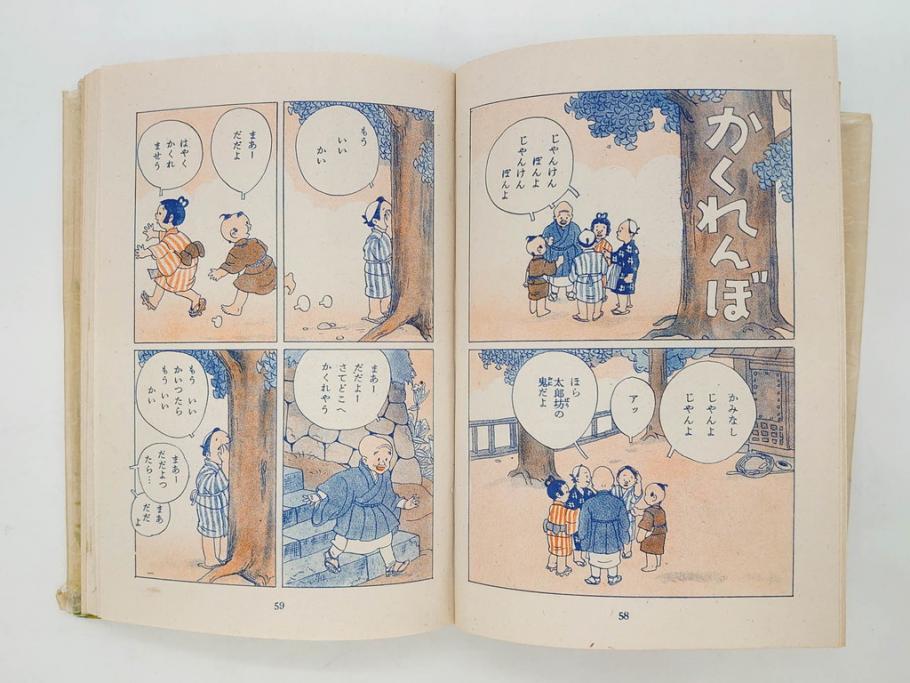 かくれんぼ
じゃんけん
ぽんよ
じゃんけん
ぽんよ
かみなし
じゃんよ
じゃんよ
アッ
ほら
太郎坊の
鬼だよ
58
もう
いい
かい
まあー
だだよ
はやく
かくれ
ませう
まあー
だだよー
さてどこへ
かくれやう
もう いい
かいつたら
もう いい
かい
まあー
だだよつ
たら…
まあ
だだ
よ
59